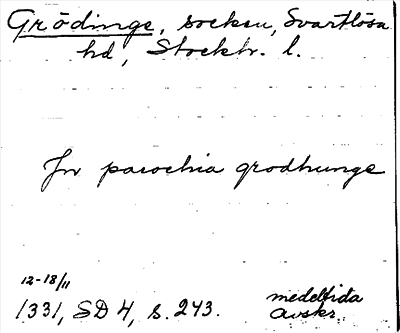 Grödinge, socken, Svartlösa
hd, Stockh. l.
Jn parochia grodhunge
12-18/11
1331, SD 4, s. 243.
medeltida
avskr.